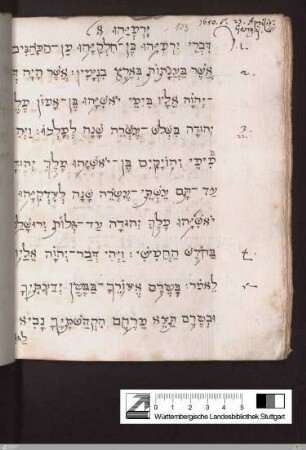 ירמיהו א
1680. d. 23. Aprilis.
דברי ירמיהו בן־חלקיהו מן־הכהנים 1.
אשר בענתות בארץ בנימין: אשר היה ד 2.
יהוה אליו בימי יאשיהו בן־אמון מלך
יהודה בשלש־עשרה שנה למלכו: ויהי 3.
בימי יהויקים בן־יאשיהו מלך יהוד
עד־תם עשתי־עשרה שנה לצדקיהו
יאשיהו מלך יהודה עד־גלות ירושל
בחדש החמישי: ויהי דבר־יהוה אלי 4.
לאמר: בטרם אצורך בבטן ידעתיך 5
ובטרם תצא מרחם הקדשתיך נביא
0 1 2 3 4 5
Württembergische Landesbibliothek Stuttgart